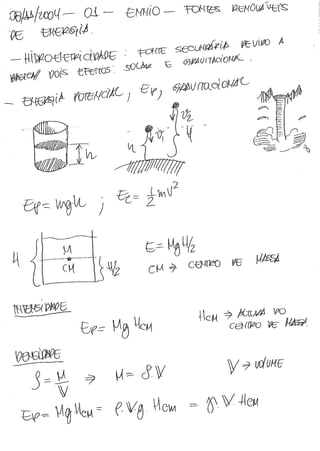 08/11/2004 - 01 - ENNIO - FONTES RENOVÁVEIS
DE ENERGIA.
- HIDROELETRICIDADE: FONTE SECUNDÁRIA DEVIDO A
DOIS EFEITOS: SOLAR E GRAVITACIONAL.
- ENERGIA POTENCIAL, Ep, GRAVITACIONAL
h
h
H
Ep = mgh ; Ec = 1/2 mv²
H
M
CM
H/2
E = MgH/2
CM → CENTRO DE MASSA
INTENSIDADE
Ep = Mg Hcm
Hcm → ALTURA DO
CENTRO DE MASSA
DENSIDADE
ρ = M/V ⇒ M = ρ.V
V → VOLUME
Ep = Mg Hcm = ρ.V.g.Hcm = γ.V.Hcm